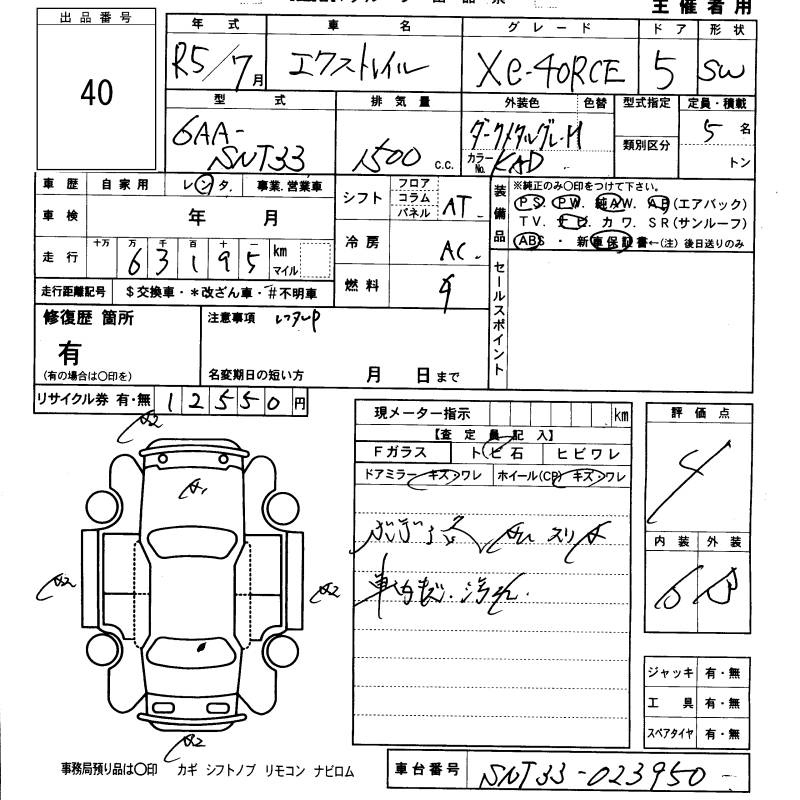 主催者用
出品番号
40
年式 車名 グレード ドア 形状
R5/7月 エクストレイル Xe-4ORCE 5 SW
型式 排気量 外装色 色替 型式指定 定員・積載
6AA-SNT33 1500 c.c. ダークメタルグレーM 類別区分 5名
カラーNo. KAD トン
車歴 自家用 レンタ. 事業.営業車
シフト フロア コラム パネル AT
装備品 ※純正のみ〇印をつけて下さい。
PS. PW. 純AW. AB(エアバック)
TV. ナビ. カワ. SR(サンルーフ)
ABS ・ 新車保証書←(注) 後日送りのみ
車検 年 月
冷房 AC.
走行 十万 万 千 百 十 一
63195 km マイル
燃料
走行距離記号 $交換車・*改ざん車・#不明車
セールスポイント
修復歴 箇所
有
(有の場合は〇印を)
注意事項 レンタUP
名変期日の短い方 月 日まで
リサイクル券 有・無 12550円
現メーター指示 km
【査定員記入】
Fガラス トビ石 ヒビワレ
ドアミラー キズ・ワレ ホイール(CP) キズ・ワレ
評価点
4
内装 外装
B
A2
A1
A2
A2
A2
車内 汚れ.
ジャッキ 有・無
工具 有・無
スペアタイヤ 有・無
事務局預り品は〇印 カギ シフトノブ リモコン ナビロム
車台番号 SNT33-023950